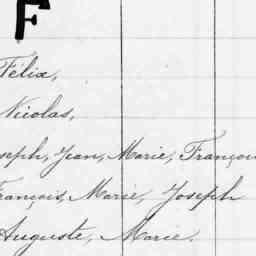 F
Félix,
Nicolas,
seph, Jean, Marie, Françou
François, Marie, Joseph
Auguste, Marie.